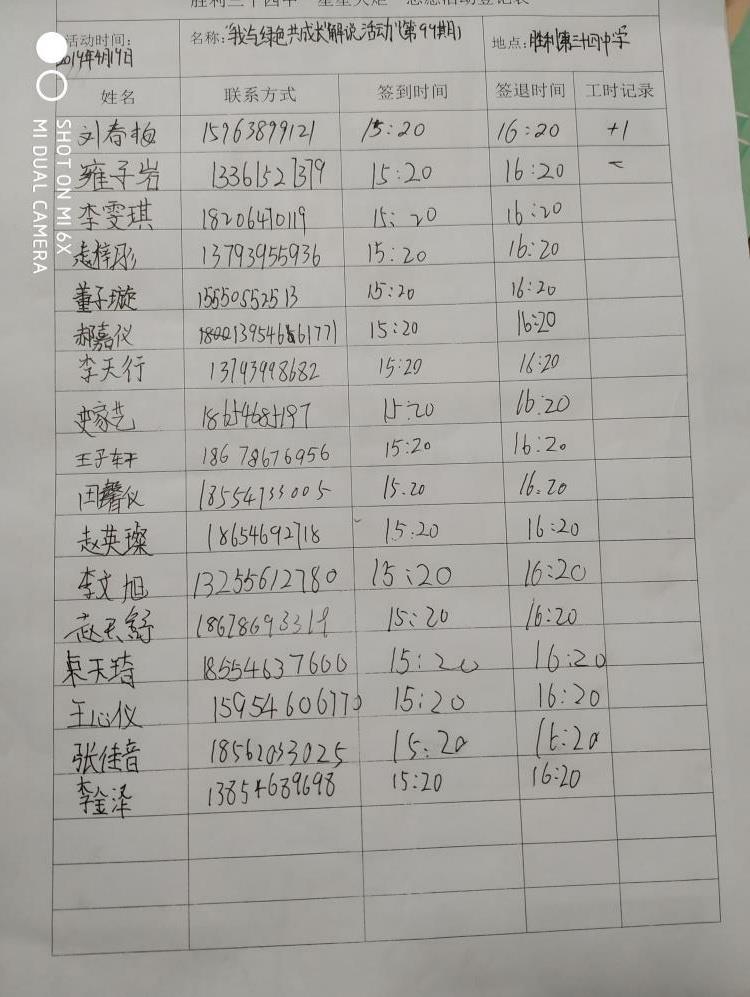 胜利三十四中"星星火炬"志愿活动登记表
活动时间: 2019年4月19日 名称:"我与绿色共成长"解说活动"(第99期) 地点: 胜利第三十四中学
姓名 联系方式 签到时间 签退时间 工时记录
刘春梅 15963899121 15:20 16:20 +1
雍子岩 13361527379 15:20 16:20
李雯琪 18206470119 15:20 16:20
13793955936 15:20 16:20
董子璇 15550552513 15:20 16:20
郝嘉仪 15:20 16:20
李天行 13793998682 15:20 16:20
史家艺 18654685197 15:20 16:20
王子轩 18678676956 15:20 16:20
田馨仪 18554733005 15:20 16:20
赵英璨 18654692718 15:20 16:20
李文旭 13255612780 15:20 16:20
15:20 16:20
卓天琦 18554637600 15:20 16:20
王心仪 15954606770 15:20 16:20
张佳音 18562033025 15:20 16:20
李金泽 13854689698 15:20 16:20
SHOT ON MI 6X
MI DUAL CAMERA